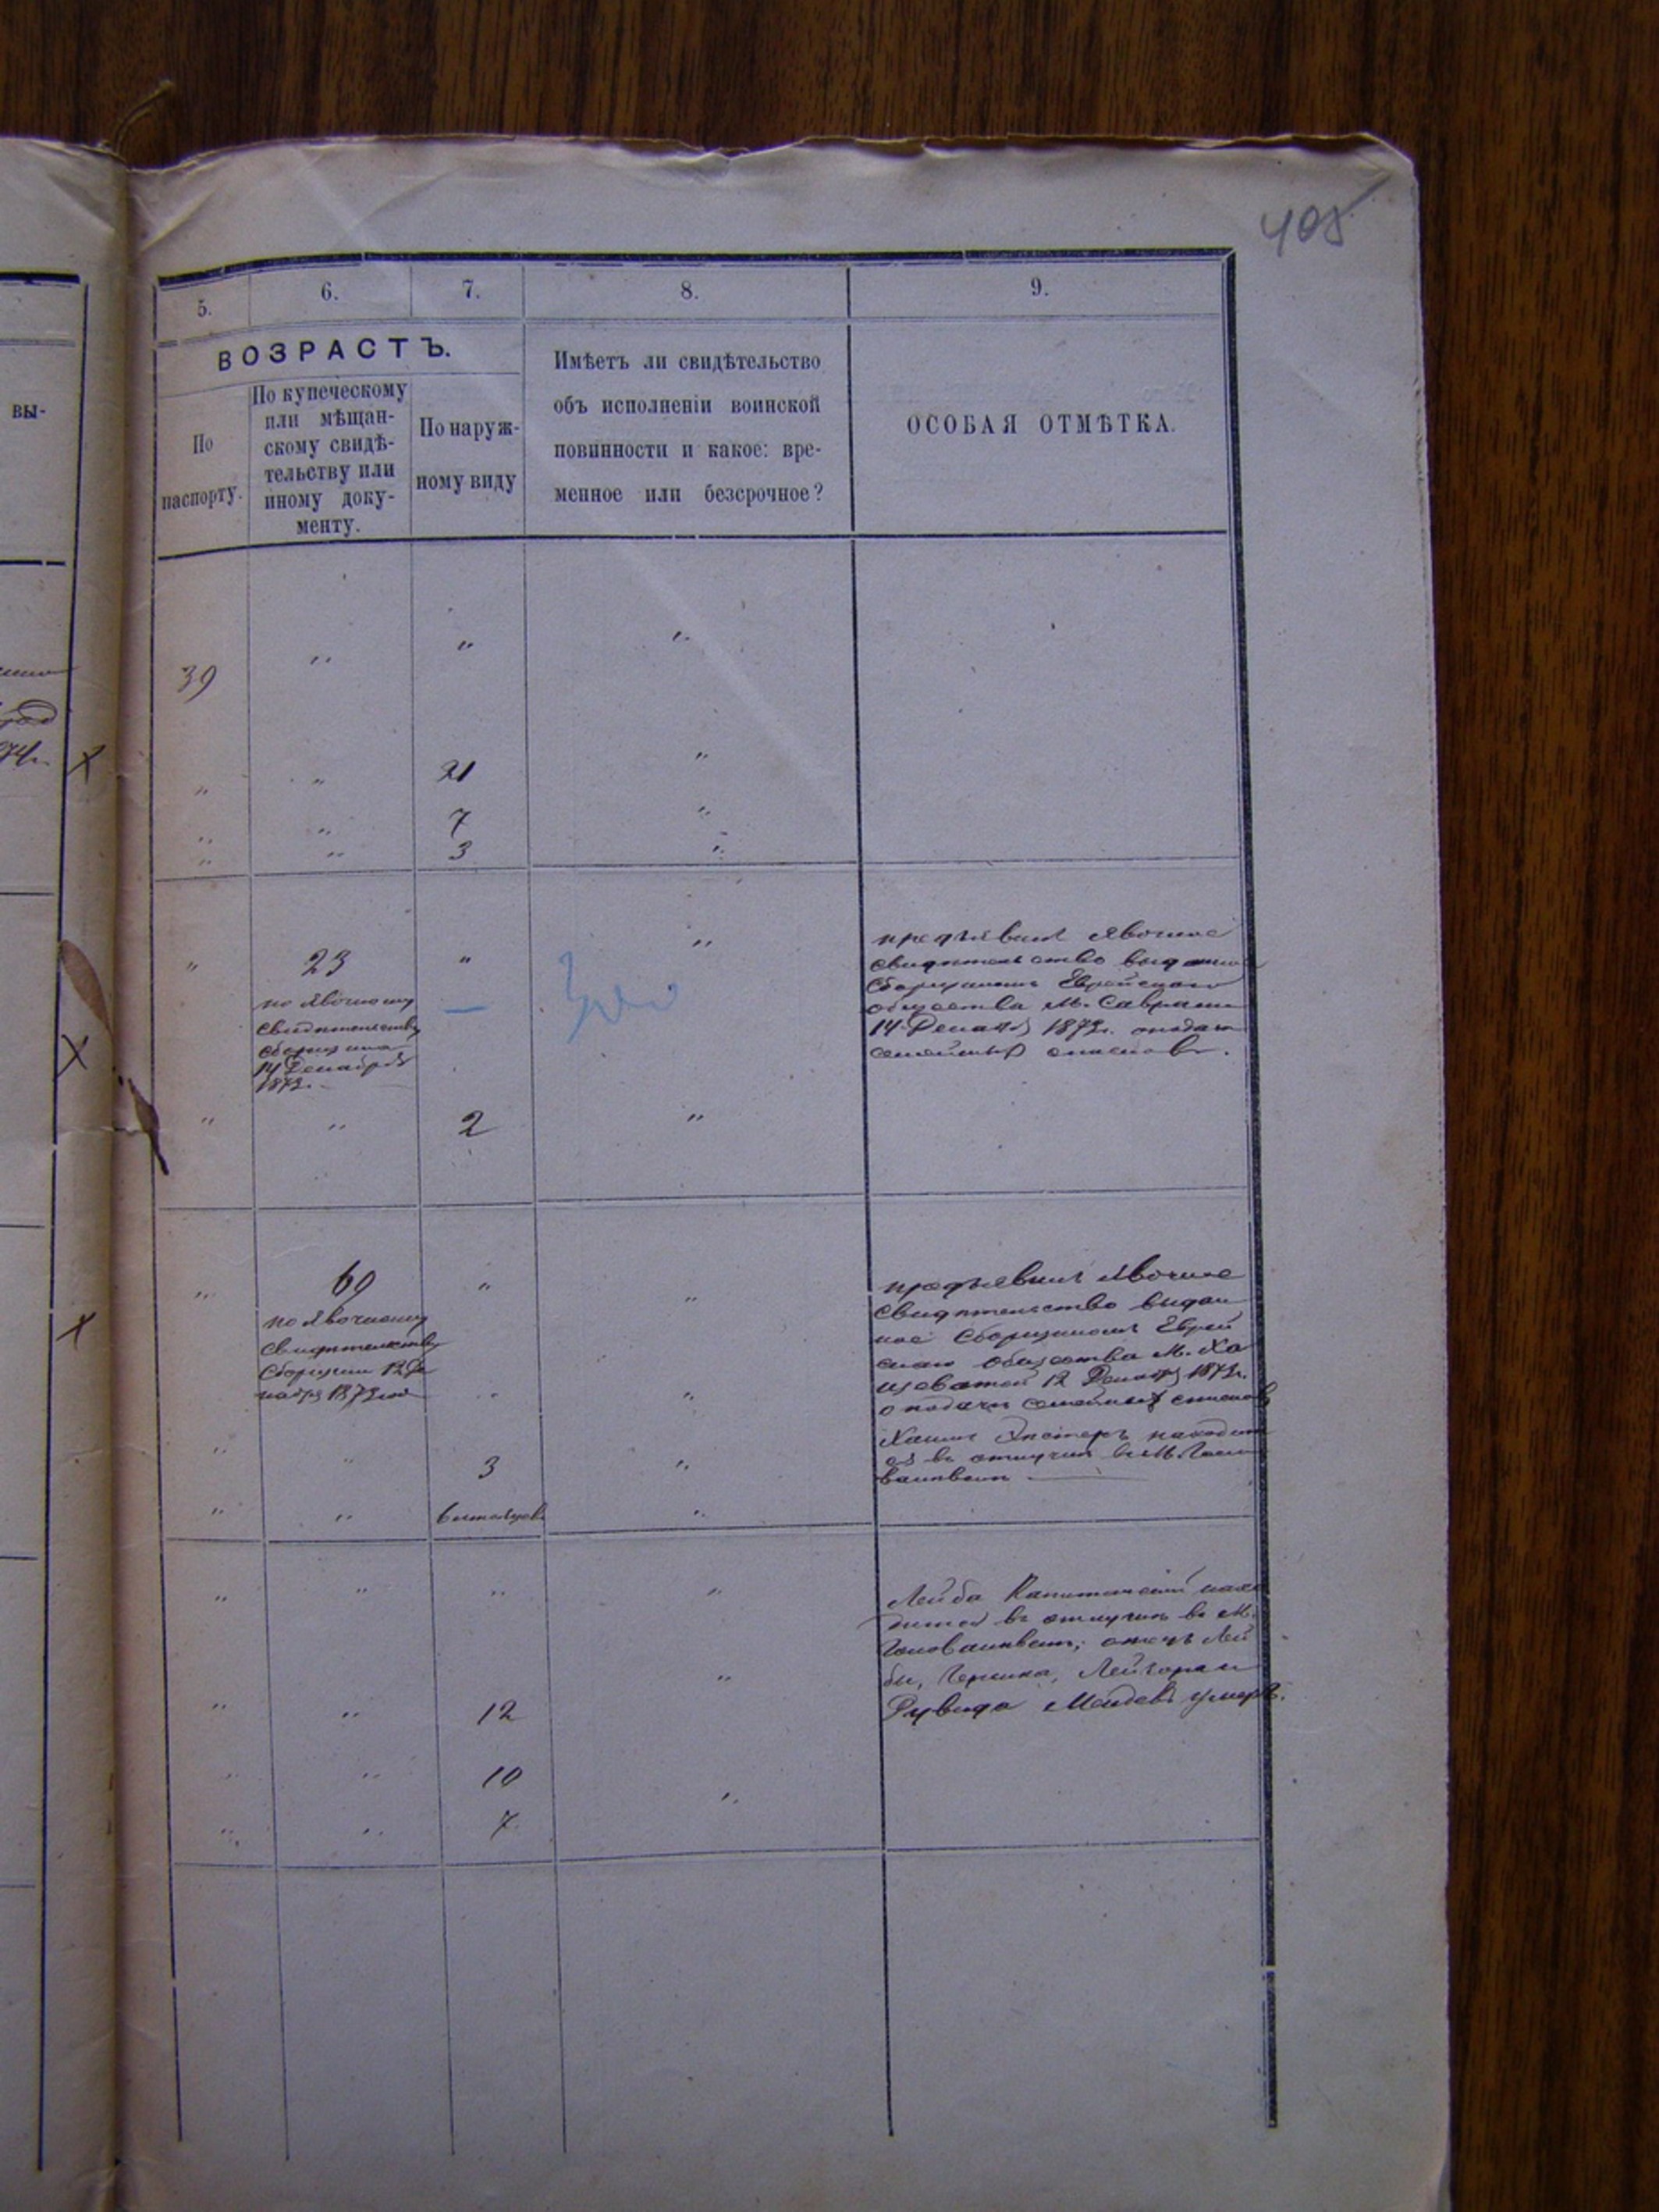 408
5.
6.
7.
8.
9.
ВОЗРАСТЪ.
По
паспорту.
По купеческому
или мѣщан-
скому свидѣ-
тельству или
иному доку-
менту.
По наруж-
ному виду
Имѣетъ ли свидѣтельство
объ исполненіи воинской
повинности и какое: вре-
менное или безсрочное?
ОСОБАЯ ОТМѢТКА.
вы-
39 " " "
" " 21 "
" " 7 "
" " 3 "
" 23 " "
по явочному
свидѣтельству
сборщика
14 Декабря
187
предъявилъ явочное
свидѣтельство выданное
Сборщикомъ Еврейскаго
общества М. Саврани
14 Декабр 187 о подачи
семейныхъ списковъ.
" " 2 "
" 60 " "
по явочному
свидѣтельству
Сборщика 12 Де
кабря 187
предъявилъ явочное
свидѣтельство выдан
ное Сборщикомъ Еврей
скаго общества М. Ха
щеватой 12 Декабр 187
о подачи семейныхъ списковъ
Хаимъ находит
ся въ отлучкѣ въ М. Голо
ваневскѣ
" " 3 "
" " 6 мѣсяцевъ "
" " " "
Лейба нахо
дится въ отлучкѣ въ М.
Голованевскѣ; отецъ Лей
бы, Гершка, и
Рувида умеръ.
" " 12 "
" " 10
" " 7 "